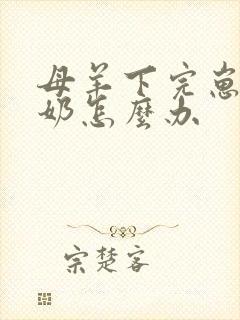 母羊下完崽
奶怎麼办
宗楚客